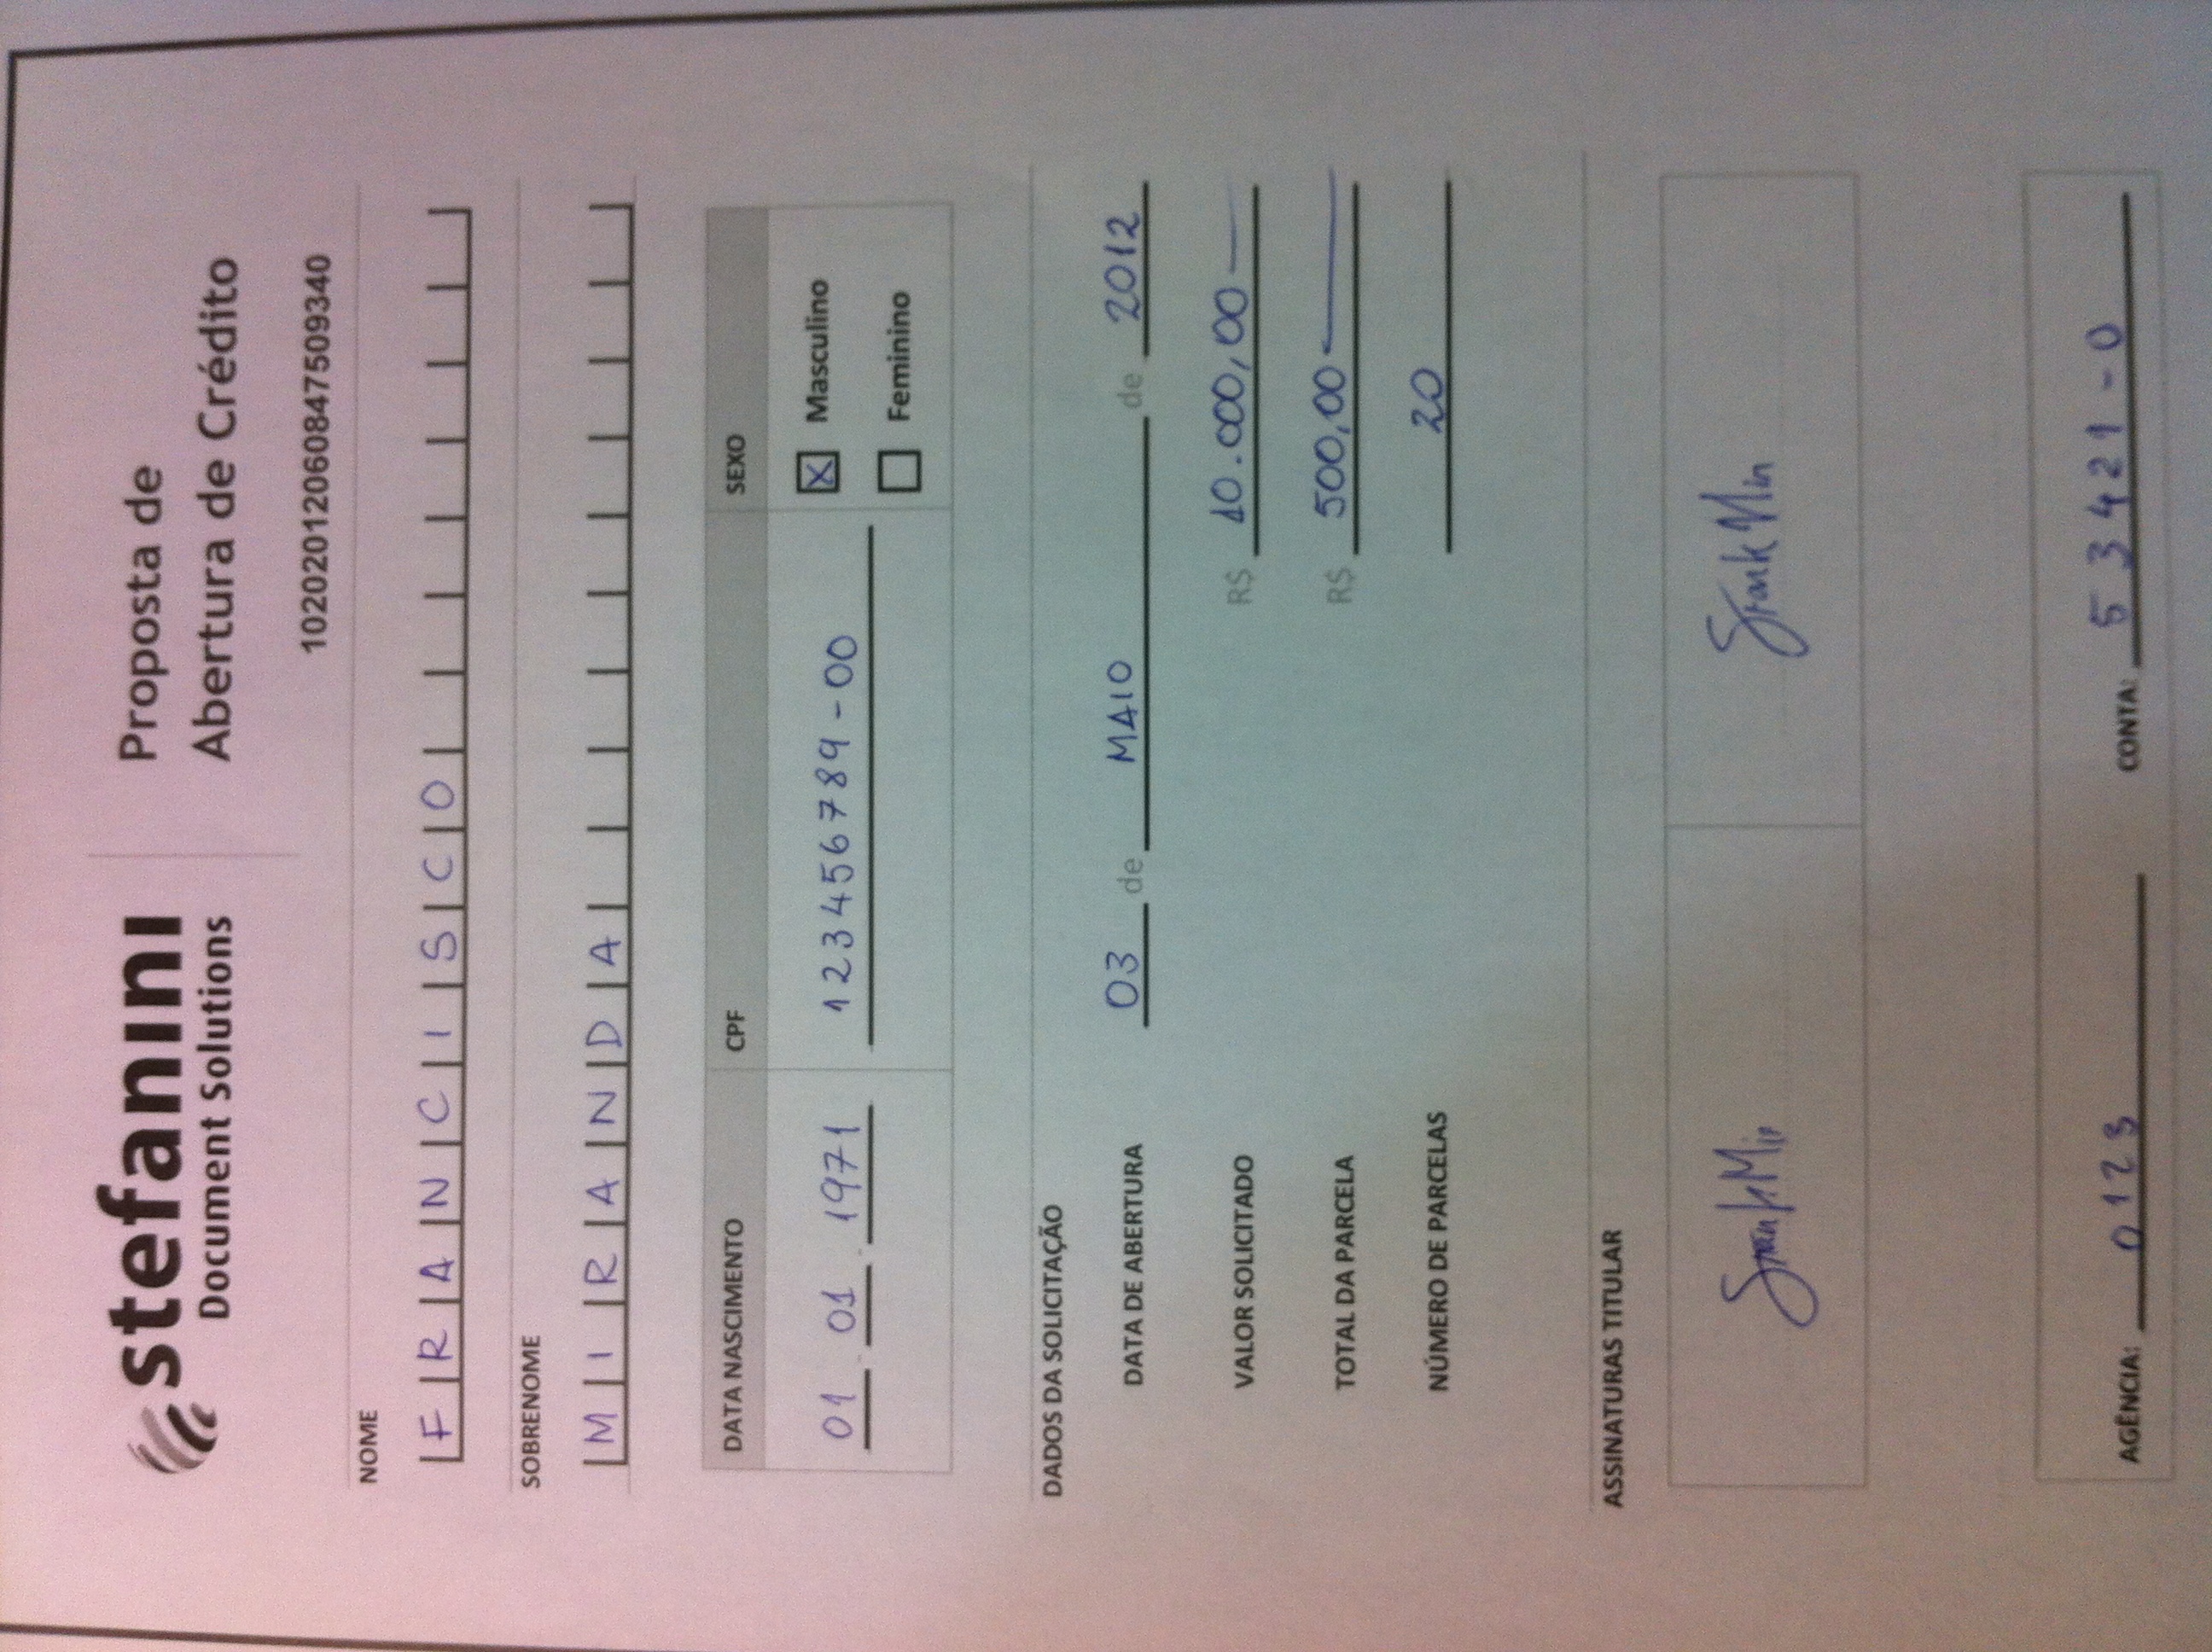 stefanini
Document Solutions
Proposta de
Abertura de Crédito
10202012060847509340
NOME
FRANCISCO
SOBRENOME
MIRANDA
DATA NASCIMENTO CPF SEXO
01 01 1971 123456789-00 Masculino
Feminino
DADOS DA SOLICITAÇÃO
DATA DE ABERTURA 03 de MAIO de 2012
VALOR SOLICITADO R$ 10.000,00
TOTAL DA PARCELA R$ 500,00
NÚMERO DE PARCELAS 20
ASSINATURAS TITULAR
AGÊNCIA: 0123 CONTA: 53421-0